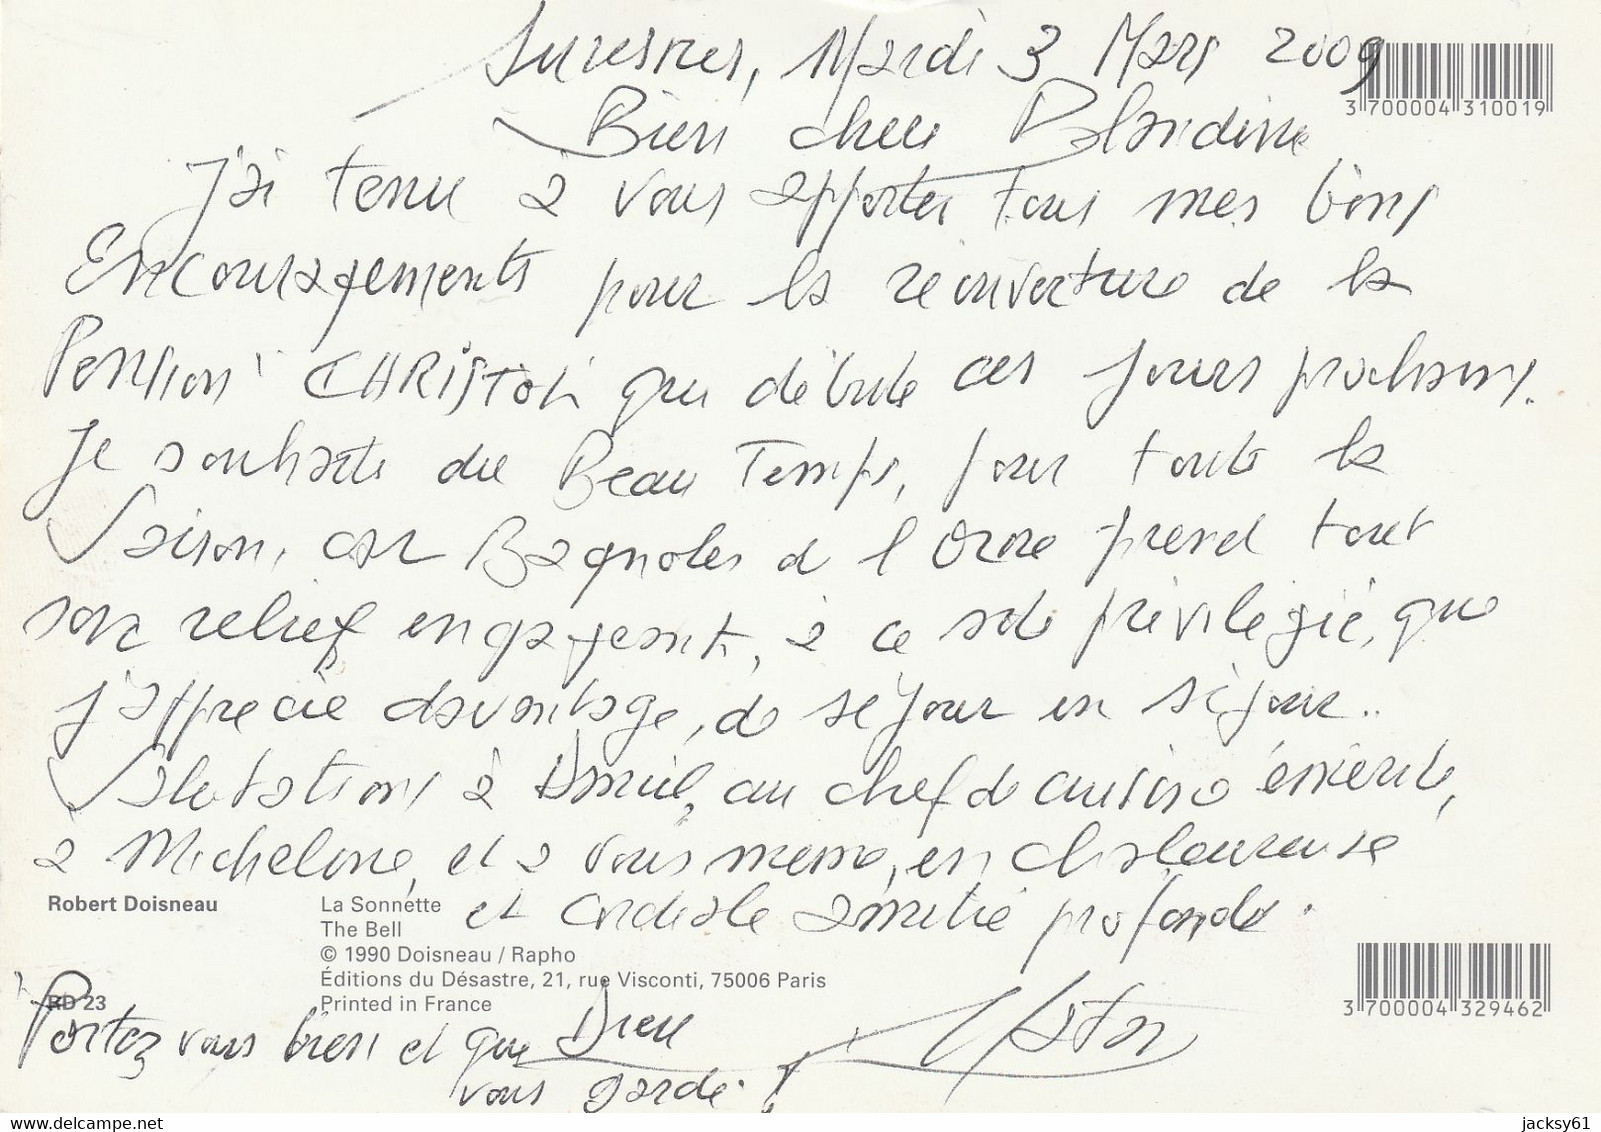 Suresnes, Mardi 3 Mars 2009
3 700004 310019
Bien chère Blandine
J'ai tenu à vous apporter tous mes bons
Encouragements pour la réouverture de la
Pension CHRISTOL qui débute ces jours prochains.
Je souhaite du Beau Temps, pour toute la
Saison, car Bagnoles de l Orne prend tout
son relief engageant, à ce site privilégié, que
j'apprécie davantage, de séjour en séjour..
Salutations à Daniel, au chef de cuisine émérite,
à Micheline, et à vous même, en chaleureuse
et cordiale amitié profonde.
Robert Doisneau
La Sonnette
The Bell
© 1990 Doisneau / Rapho
Éditions du Désastre, 21, rue Visconti, 75006 Paris
RD 23
Printed in France
3 700004 329462
Portez vous bien et que Dieu
vous garde. !
jacksy61
delcampe.net